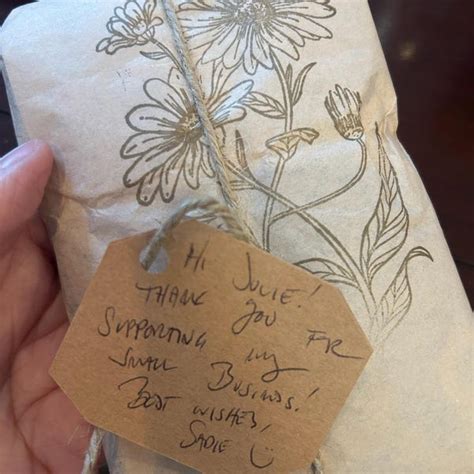 Hi Julie!
Thank you for
Supporting my
Small Business!
Best wishes,
Sadie ☺